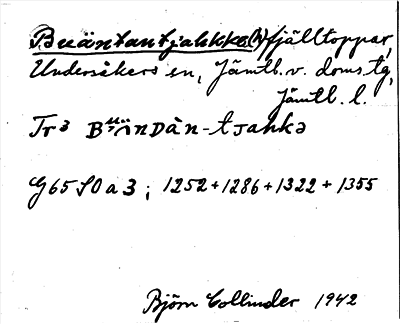 Bụäntantjahkka(h) fjälltoppar,
Undersåkers sn, Jämtl. v. doms. tg,
Jämtl. l.
Tr3 BᵘänDàn-tjahkə
G65 SO a 3; 1252+1286+1322+1355
Björn Collinder 1942